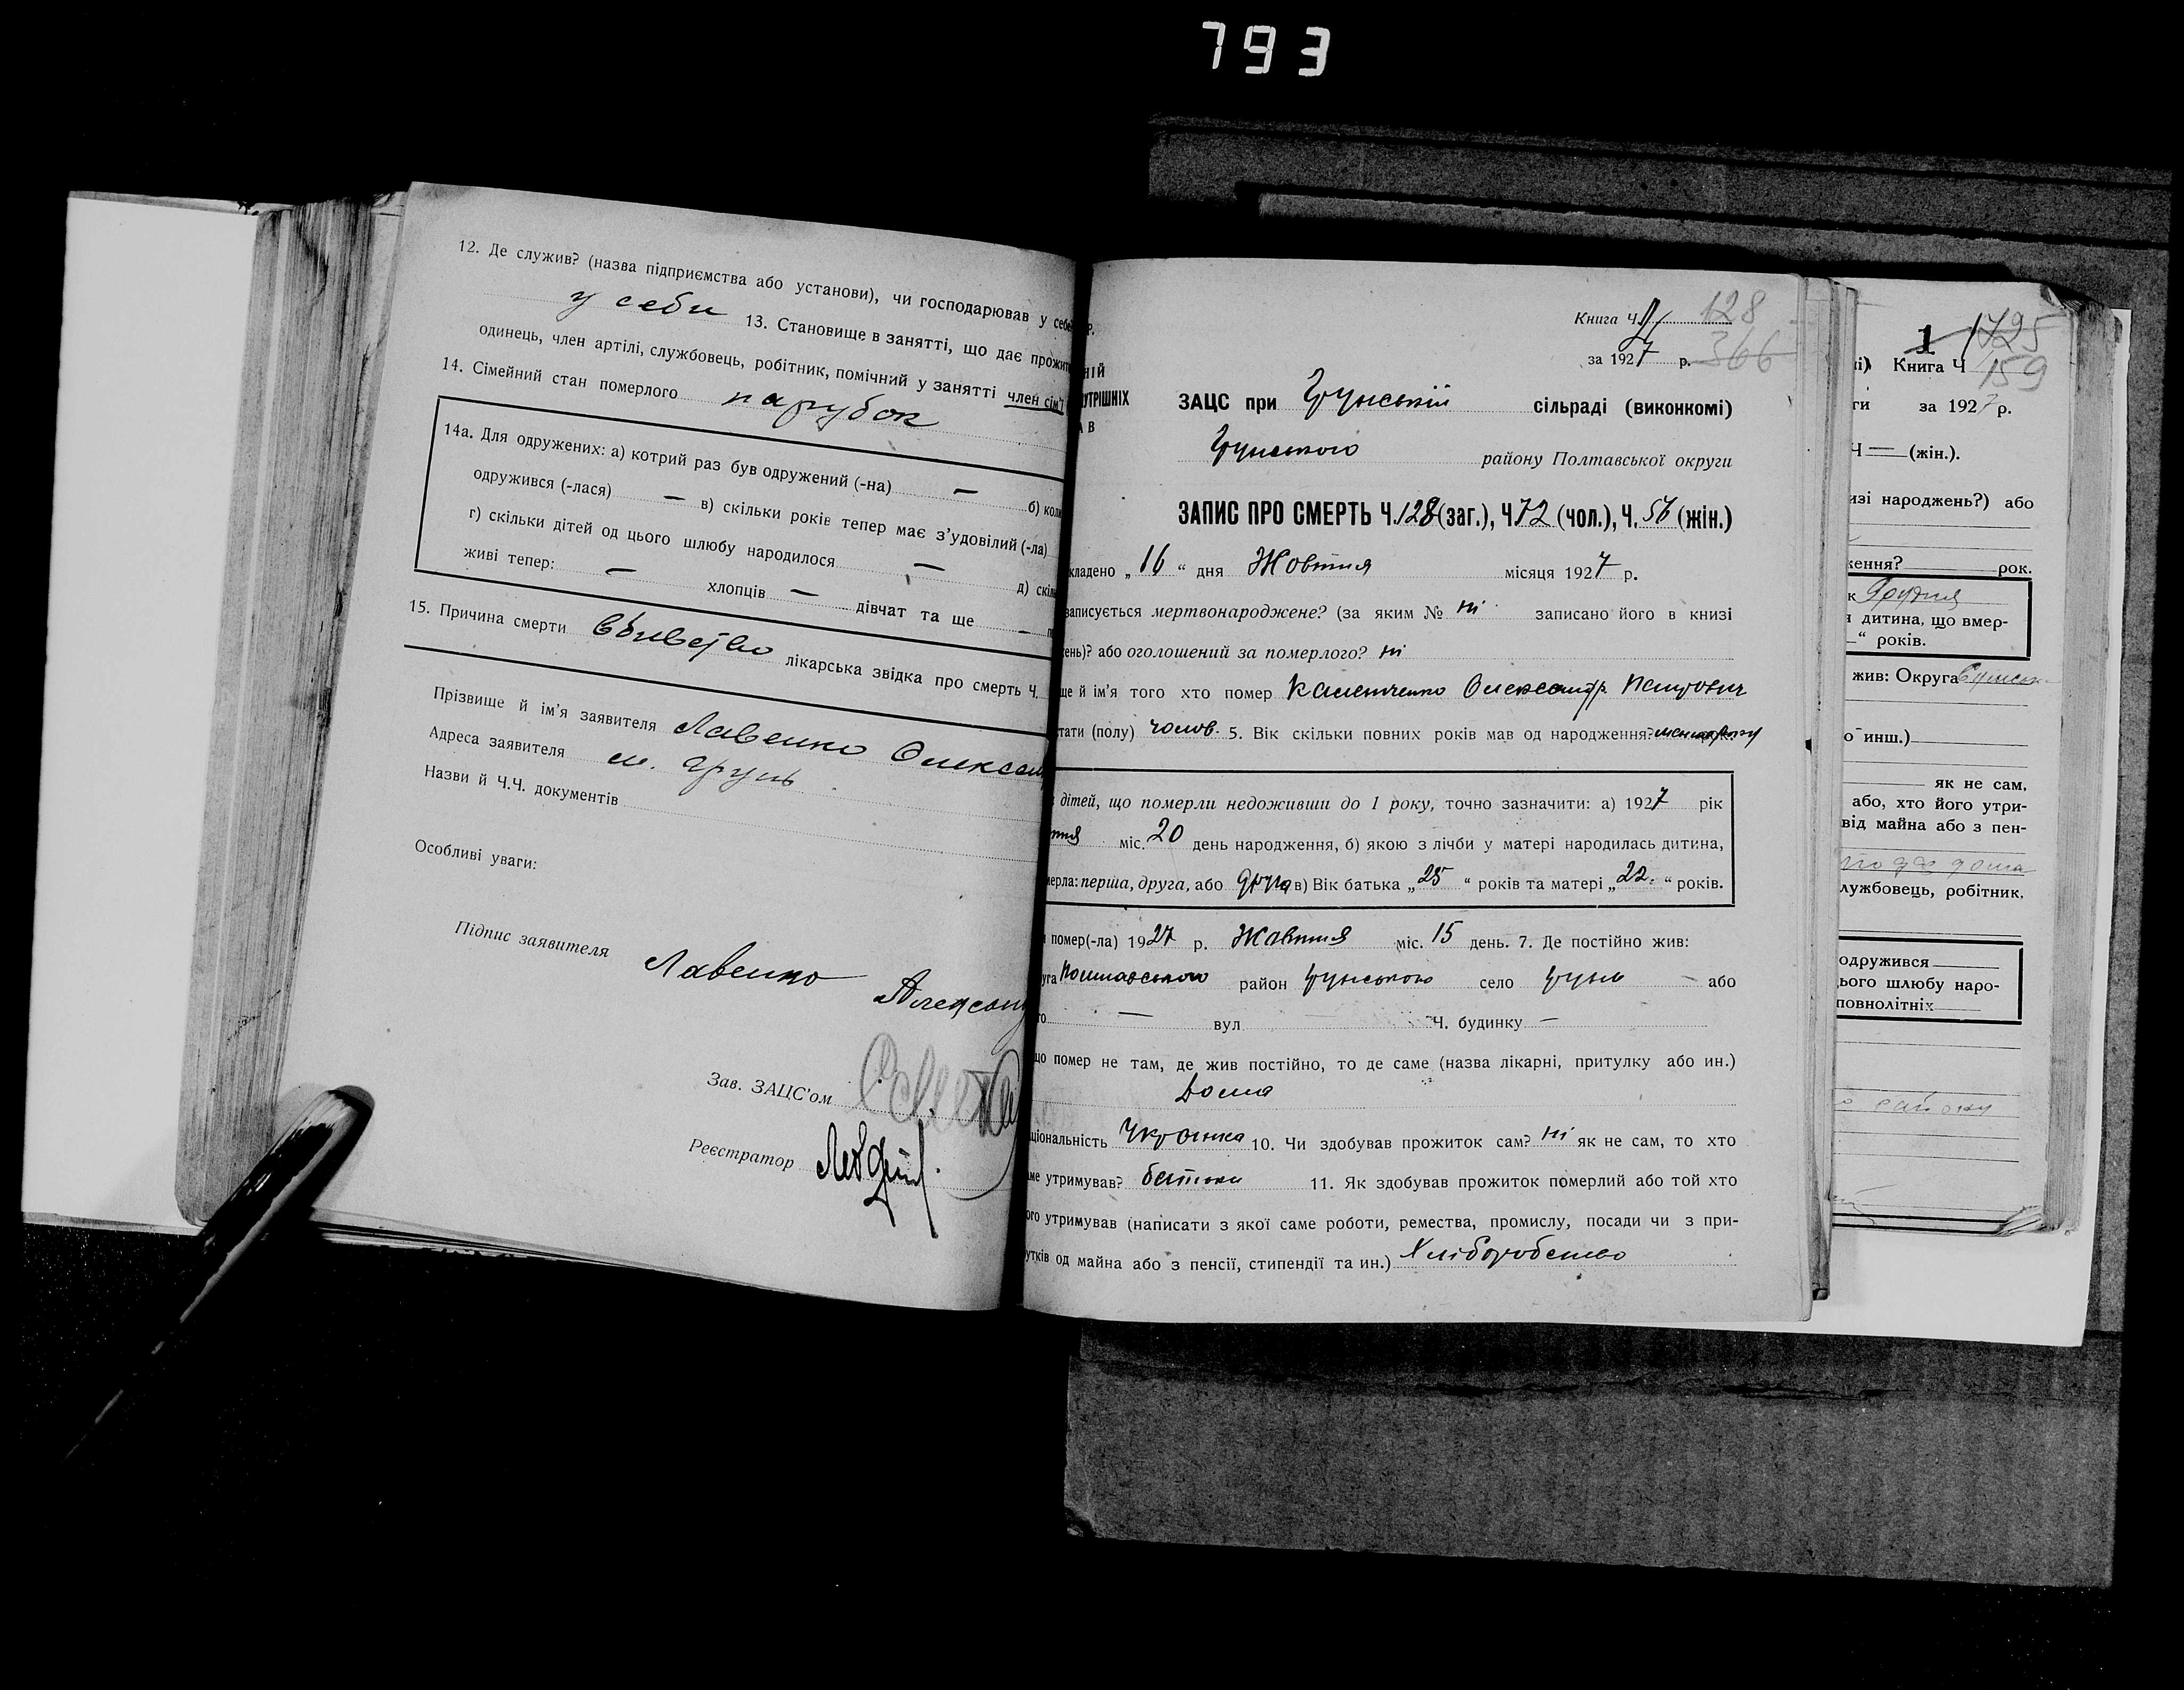 793
12. Де служив? (назва підприємства або установи), чи господарював у себе
у себи 13. Становище в занятті, що дає прожит
одинець, член артілі, службовець, робітник, помічний у занятті член сім'ї
14. Сімейний стан померлого парубок
14а. Для одружених: а) котрий раз був одружений (-на) — б) коли
одружився (-лася) — в) скільки років тепер має з'удовілий (-ла)
г) скільки дітей од цього шлюбу народилося — д) скіль
живі тепер: — хлопців — дівчат та ще —
15. Причина смерти вбивство лікарська звідка про смерть Ч.
Прізвище й ім'я заявителя Лавенко Олексан
Адреса заявителя м. Грунь
Назви й Ч.Ч. документів
Особливі уваги:
Підпис заявителя Лавенко
Зав. ЗАЦС'ом
Реєстратор
Книга Ч. 128
за 1927 р. 366
ЗАЦС при Грунській сільраді (виконкомі)
Грунського району Полтавської округи
ЗАПИС ПРО СМЕРТЬ Ч. 128 (заг.), Ч 72 (чол.), Ч. 56 (жін.)
кладено „16“ дня Жовтня місяця 1927 р.
записується мертвонароджене? (за яким № ні записано його в книзі
ень)? або оголошений за померлого? ні
ще й ім'я того хто помер Олександр Петрович
тати (полу) чолов. 5. Вік скільки повних років мав од народження?
дітей, що померли недоживши до 1 року, точно зазначити: а) 1927 рік
тня міс. 20 день народження, б) якою з лічби у матері народилась дитина,
мерла: перша, друга, або друга в) Вік батька „25“ років та матері „22.“ років.
помер(-ла) 1927 р. Жовтня міс. 15 день. 7. Де постійно жив:
уга Полтавського район Грунського село Грунь — або
го — вул Ч. будинку —
що помер не там, де жив постійно, то де саме (назва лікарні, притулку або ин.)
Дома
ціональність Українка 10. Чи здобував прожиток сам? ні як не сам, то хто
ме утримував? батьки 11. Як здобував прожиток померлий або той хто
ого утримував (написати з якої саме роботи, ремества, промислу, посади чи з при-
утків од майна або з пенсії, стипендії та ин.) Хліборобство
1 1795
Книга Ч 159
за 1927 р.
Ч — (жін.).
изі народжень?) або
ження? рок.
к Грудня
дитина, що вмер-
“ років.
жив: Округа
о инш.)
як не сам,
або, хто його утри-
від майна або з пен-
дома
лужбовець, робітник,
одружився
ього шлюбу наро-
повнолітніх
району